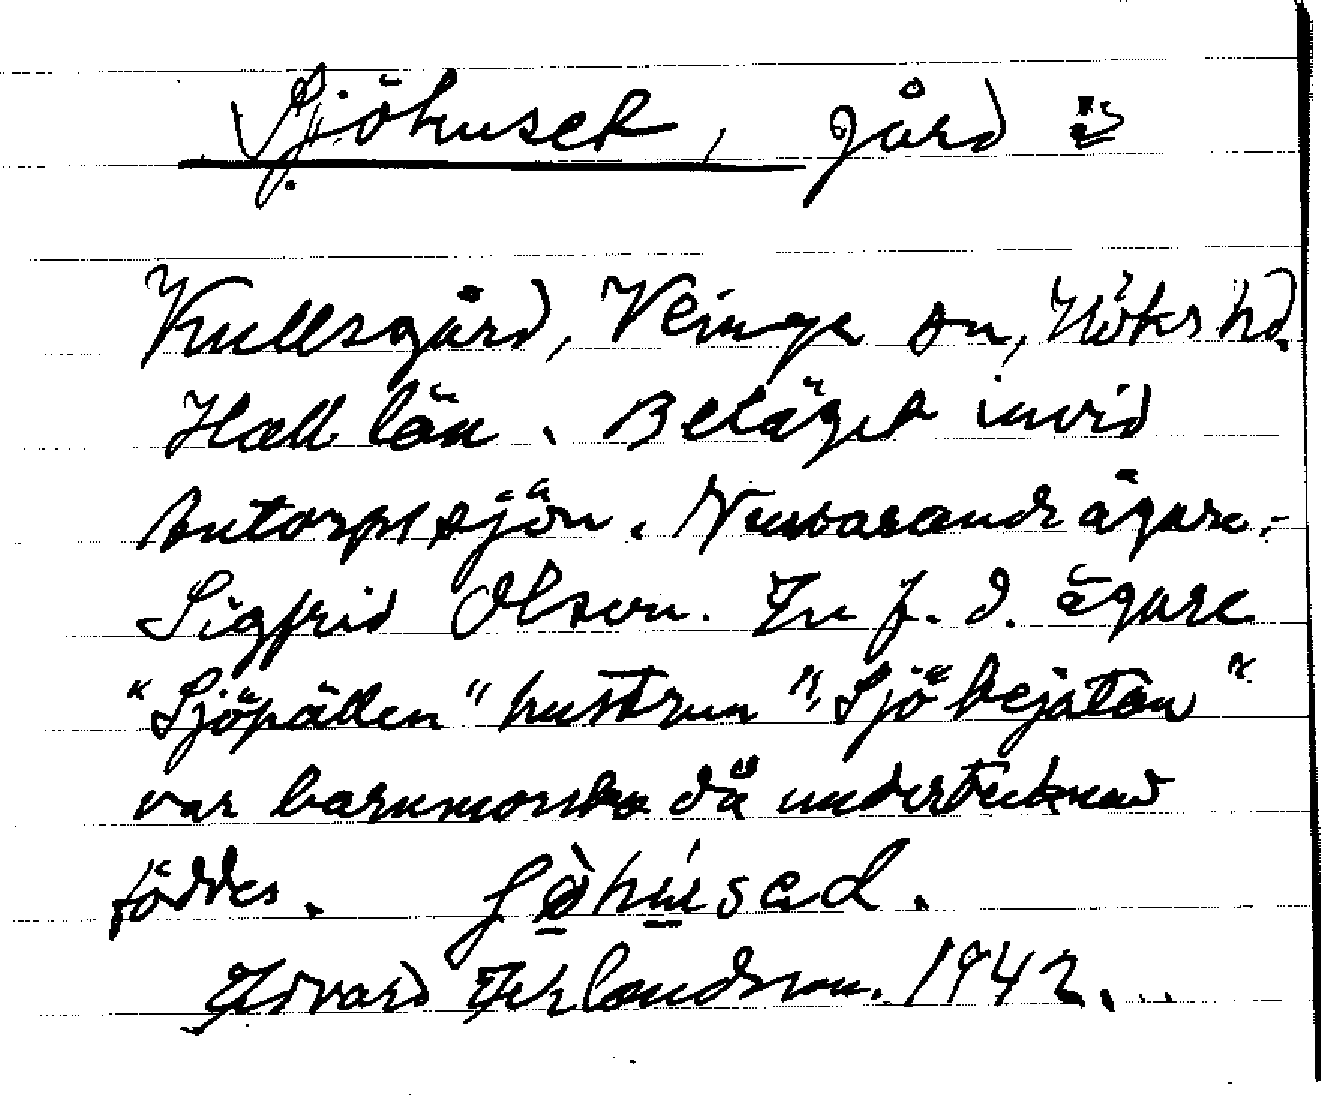 Sjöhuset, gård i
Kullsgård, Veinge sn, Höks hd.
Hall. län. Beläget invid
Antorpssjön. Nuvarande ägare:-
Sigfrid Olson. En f. d. ägare
"Sjöpällen" hustrun "Sjöbejätan"
var barnmorska då undertecknad
föddes. ʃö̀hu̇sed.
Edvard Erlandsson. 1942.